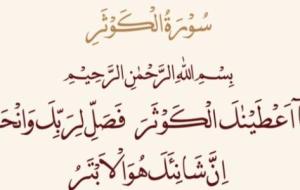 سُوْرَةُ الْكَوْثَرِ
بِسْمِ اللهِ الرَّحْمٰنِ الرَّحِيْمِ
اَعْطَيْنٰكَ الْكَوْثَرَ فَصَلِّ لِرَبِّكَ
اِنَّ شَانِئَكَ هُوَ الْاَبْتَرُ